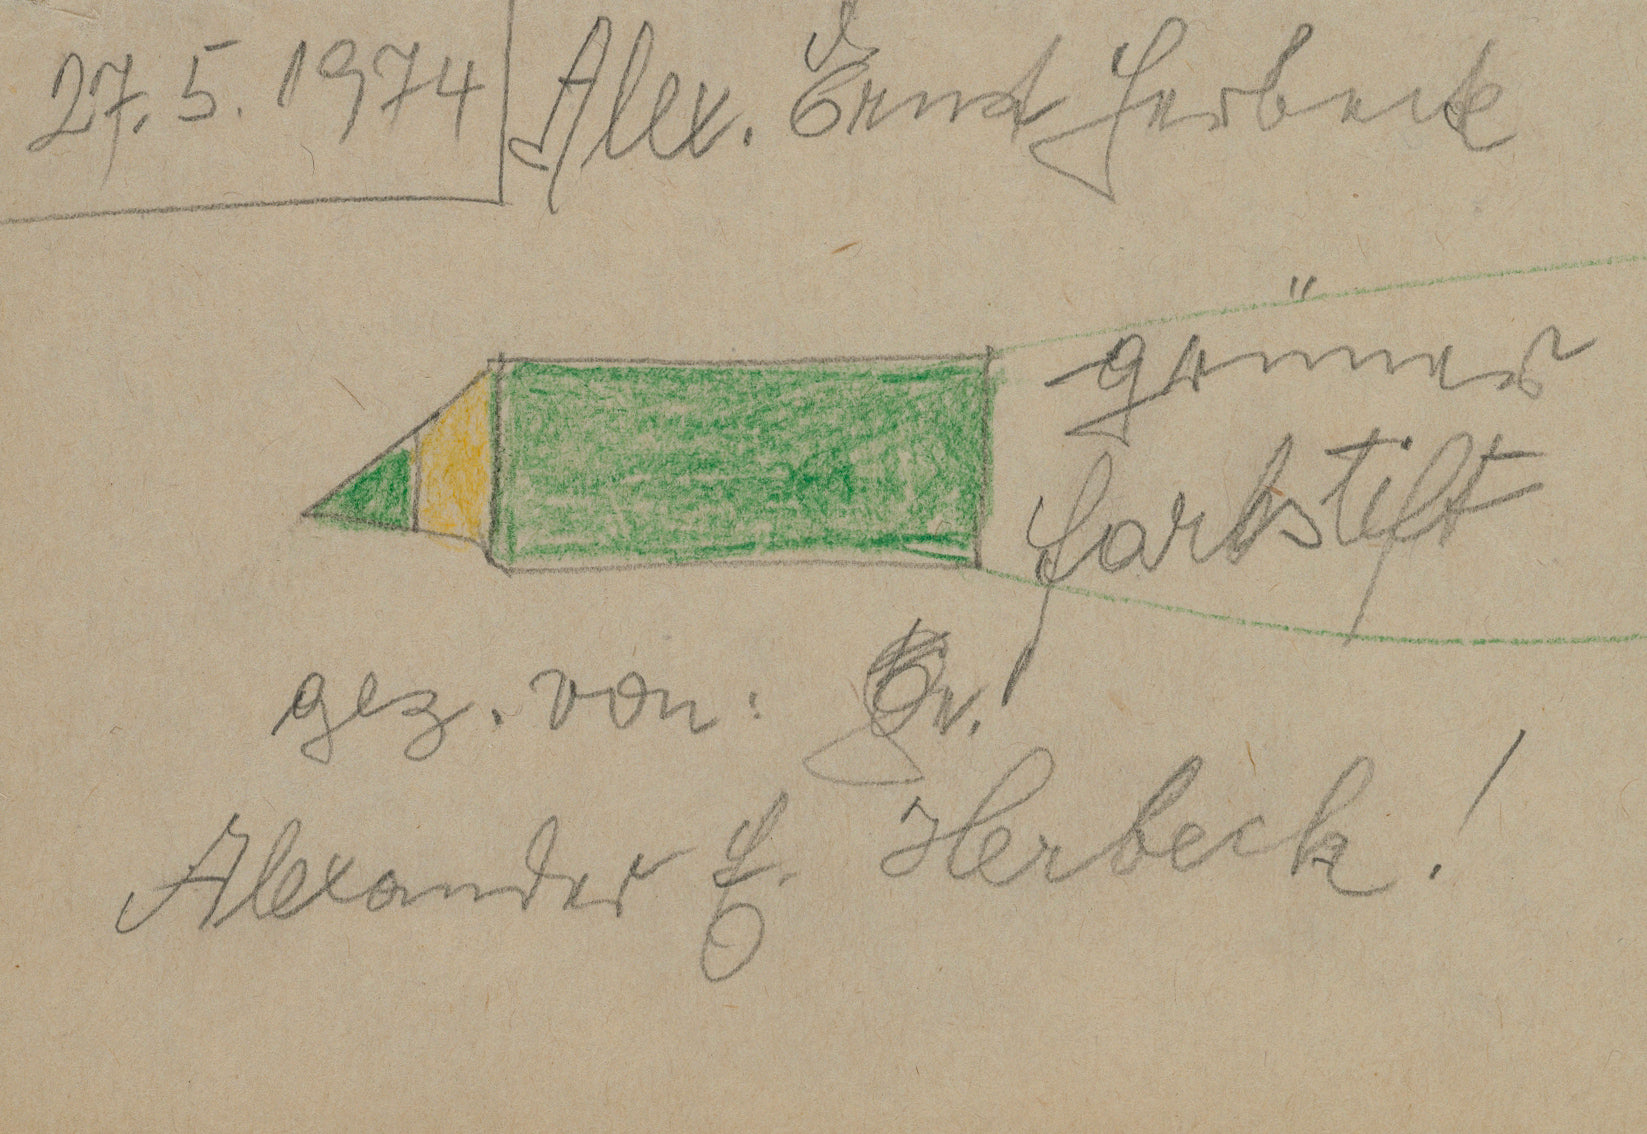 27. 5. 1974 Alex. Ernst Herbeck
grüner
farbstift
gez. von: Dr.
Alexander E. Herbeck!